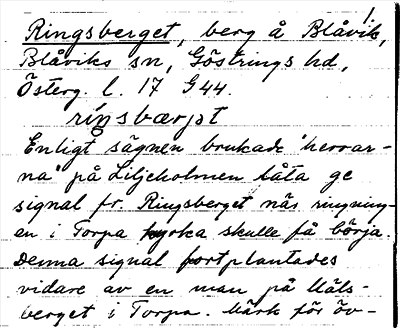 1.
Ringsberget, berg å Blåvik,
Blåviks sn, Göstrings hd,
Österg. l. 17 G44.
riŋsbærjət
Enligt sägnen brukade "herrar-
na" på Liljeholmen låta ge
signal fr. Ringsberget när ringning-
en i Torpa kyrka skulle få börja.
Denna signal fortplantades
vidare av en man på Måls-
berget i Torpa. Märk för öv-